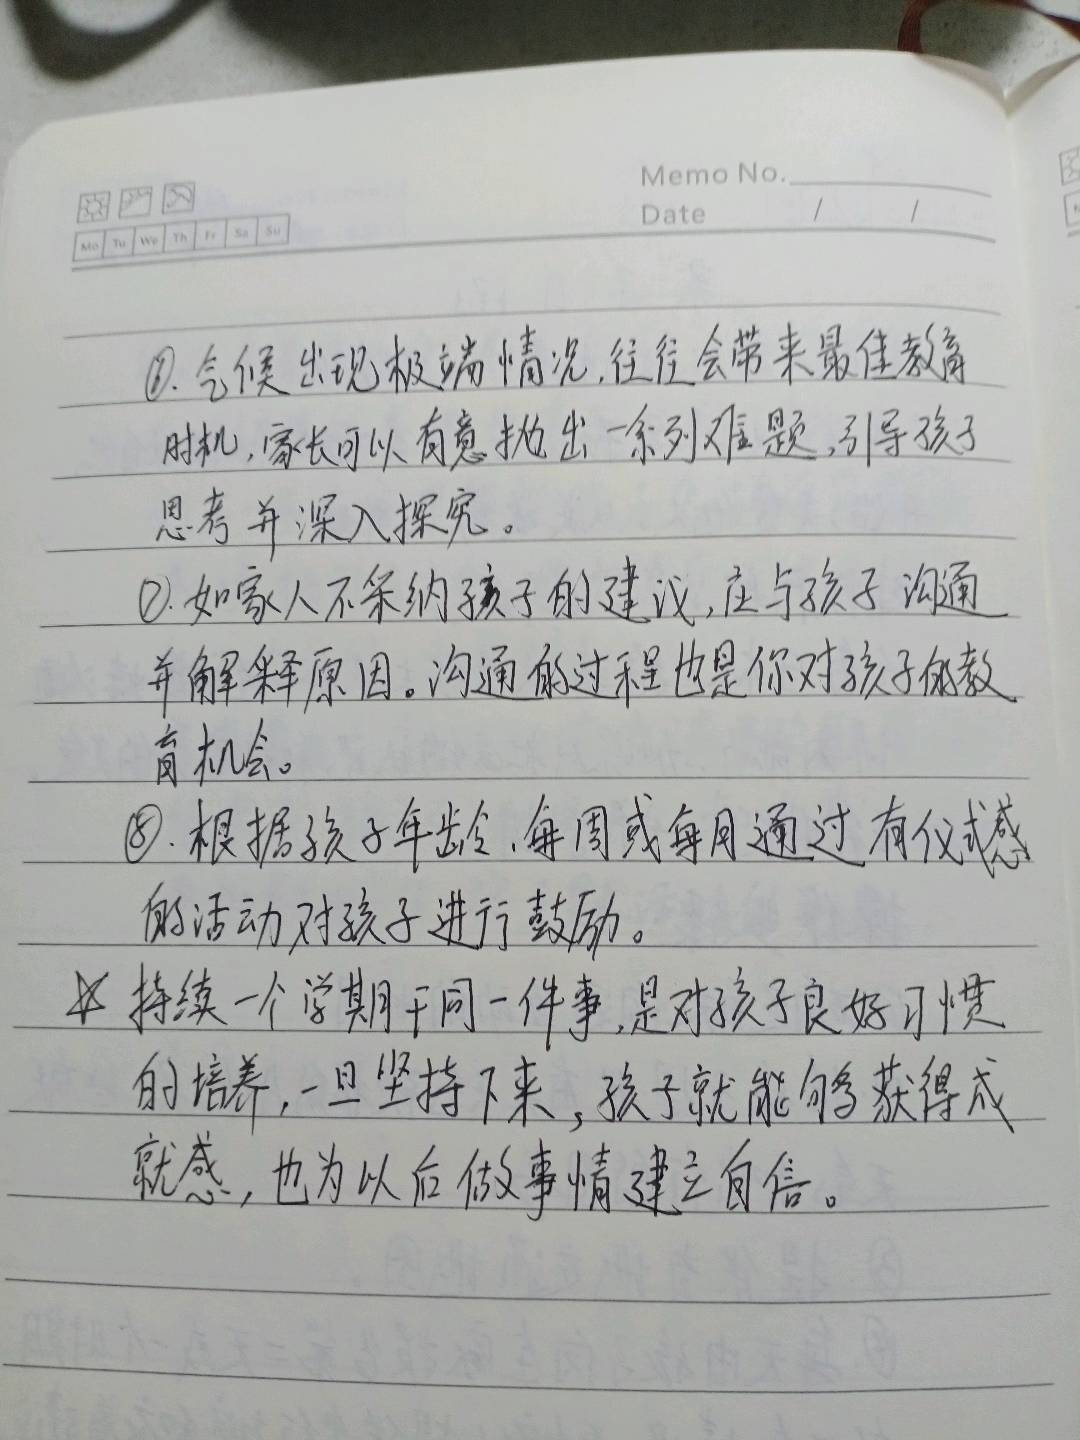 Memo No.
Date / /
Mo Tu We Th Fr Sa Su
⑥.气候出现极端情况,往往会带来最佳教育
时机,家长可以有意抛出一系列难题,引导孩子
思考并深入探究。
⑦.如家人不采纳孩子的建议,应与孩子沟通
并解释原因。沟通的过程也是你对孩子的教
育机会。
⑧.根据孩子年龄,每周或每月通过有仪式感
的活动对孩子进行鼓励。
☆ 持续一个学期干同一件事,是对孩子良好习惯
的培养,一旦坚持下来,孩子就能够获得成
就感,也为以后做事情建立自信。